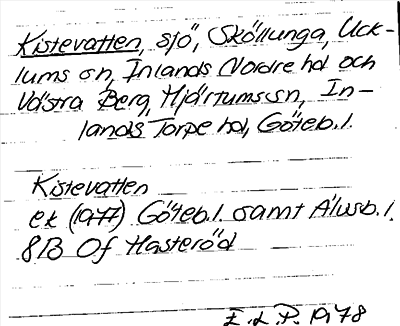 Kistevatten, sjö, Sköllunga, Uck-
lums sn, Inlands Nordre hd och
Västra Berg, Hjärtums sn, In-
lands Torpe hd, Göteb. l.
Kistevatten
ek (1977) Göteb. l. samt Älvsb. l.
8B 0f Hasteröd
E.L.P. 1978